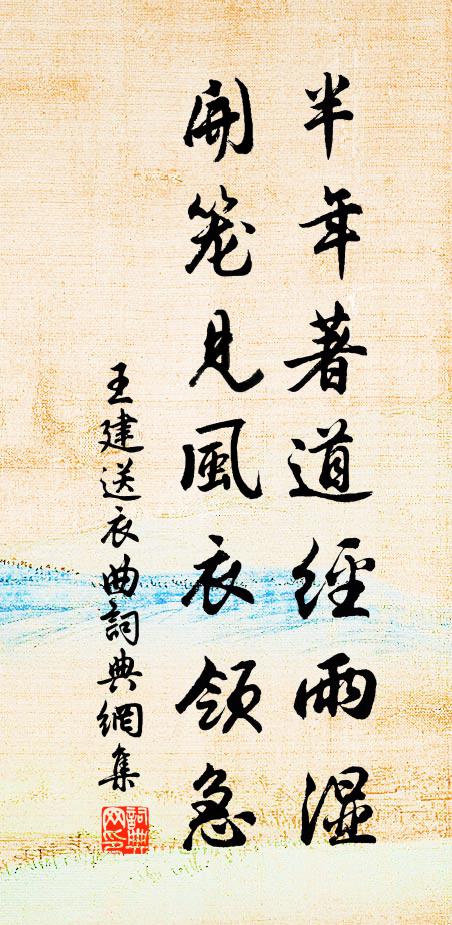 半年著道經雨濕
開籠見風衣領急
王建送衣曲詞典網集
詞典
网印